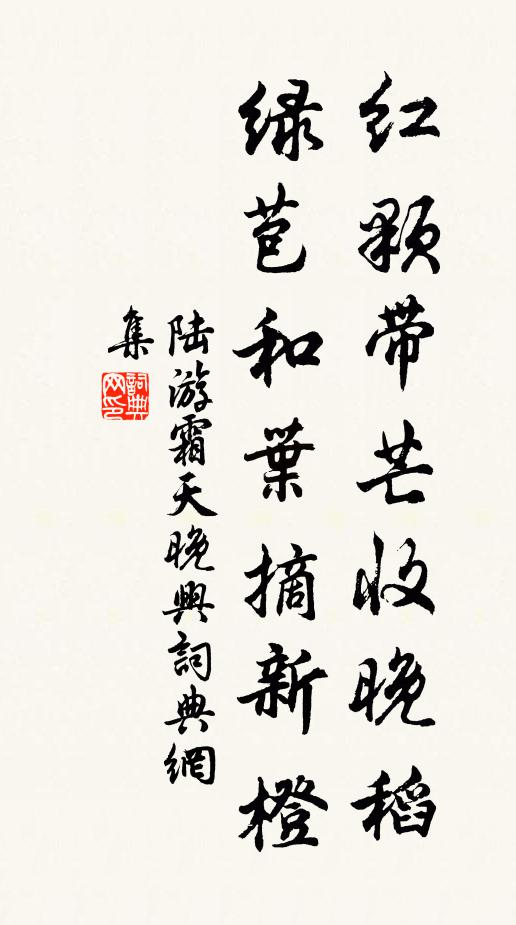 红颗带芒收晚稻
绿苞和葉摘新橙
陆游霜天晚興詞典網
集
詞典网印